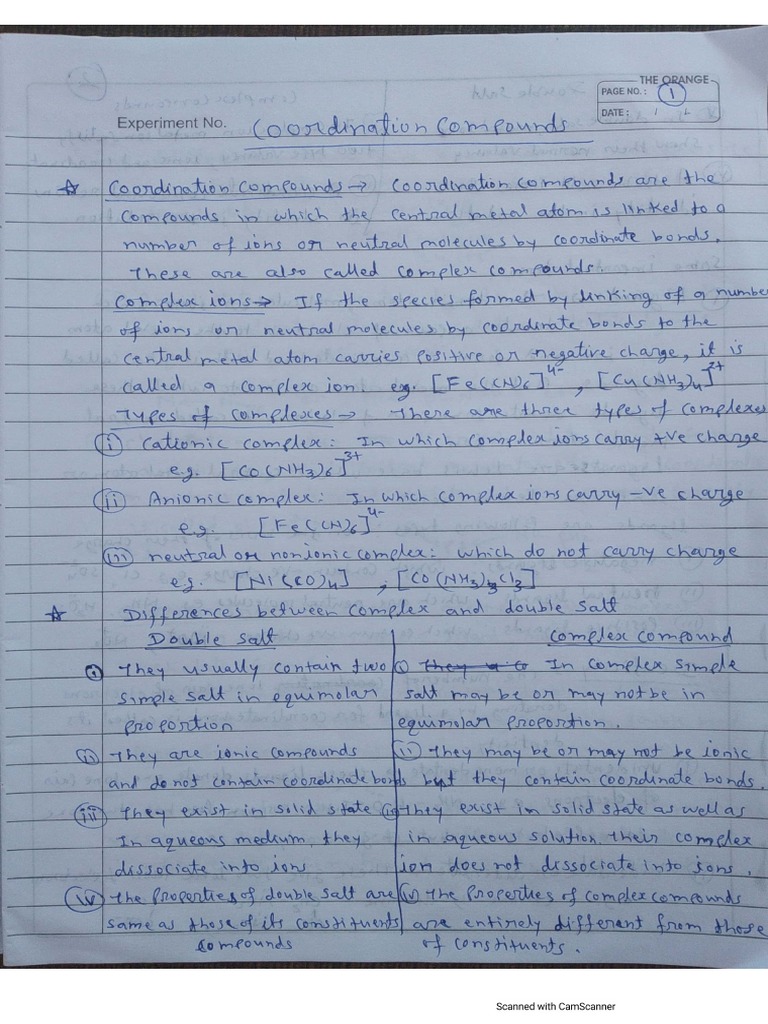 THE ORANGE
PAGE NO.: 1
DATE: / /
Experiment No. Coordination Compounds
☆ Coordination compounds → Coordination compounds are the
compounds in which the central metal atom is linked to a
number of ions or neutral molecules by coordinate bonds.
These are also called complex compounds
Complex ions → If the species formed by linking of a number
of ions or neutral molecules by coordinate bonds to the
central metal atom carries positive or negative charge, it is
called a complex ion. eg. [Fe(CN)6]4-, [Cu(NH3)4]2+
Types of complexes → There are three types of complexes
(i) Cationic complex: In which complex ions carry +ve charge
e.g. [CO(NH3)6]3+
(ii) Anionic complex: In which complex ions carry -ve charge
e.g. [Fe(CN)6]4-
(iii) neutral or nonionic complex: which do not carry charge
e.g. [Ni(CO)4], [CO(NH3)3Cl3]
☆ Differences between complex and double salt
Double salt
complex compound
(i) They usually contain two
simple salt in equimolar
proportion
(i) In complex simple
salt may be or may not be in
equimolar proportion.
(ii) They are ionic compounds
and do not contain coordinate bonds
(ii) They may be or may not be ionic
but they contain coordinate bonds.
(iii) They exist in solid state
In aqueous medium, they
dissociate into ions
(iii) They exist in solid state as well as
in aqueous solution, their complex
ion does not dissociate into ions.
(iv) The properties of double salt are
same as those of its constituents
compounds
(iv) The properties of complex compounds
are entirely different from those
of constituents.
Scanned with CamScanner